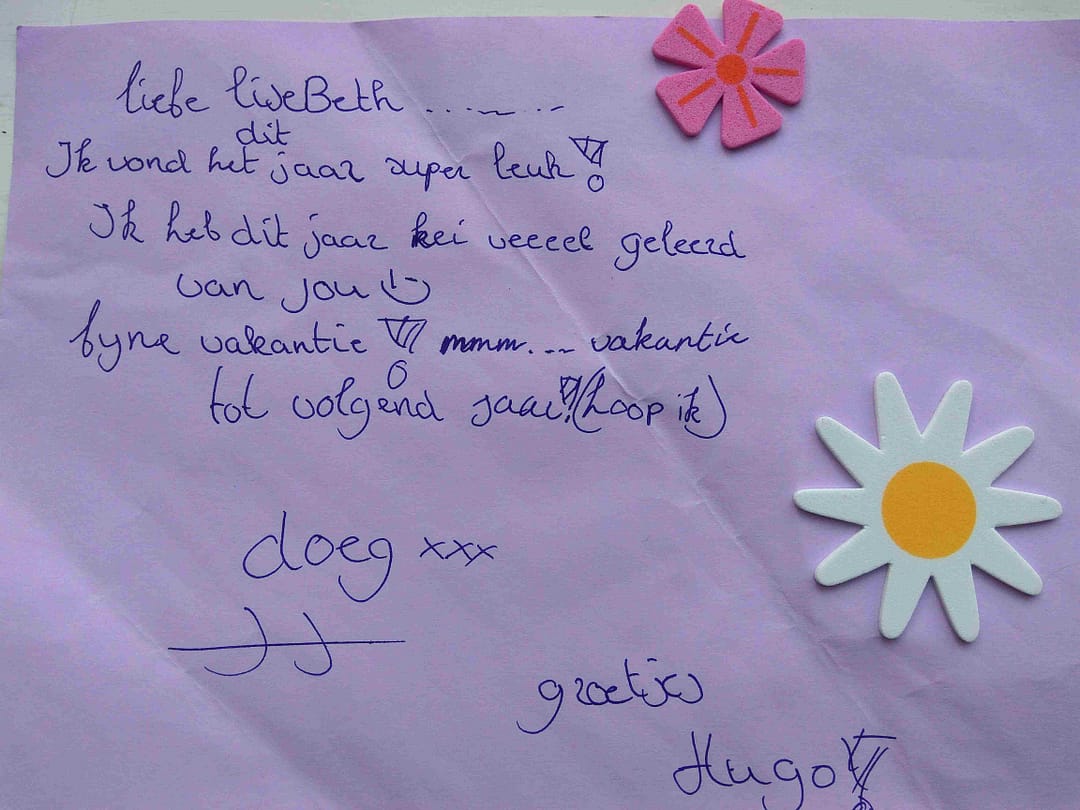 liefe liveBeth ........
dit
Ik vond het jaar super leuk!
Ik heb dit jaar kei veeeel geleerd
van jou :)
fyne vakantie! mmm... vakantie
tot volgend jaar! (hoop ik)
doeg xxx
groetjes
Hugo!